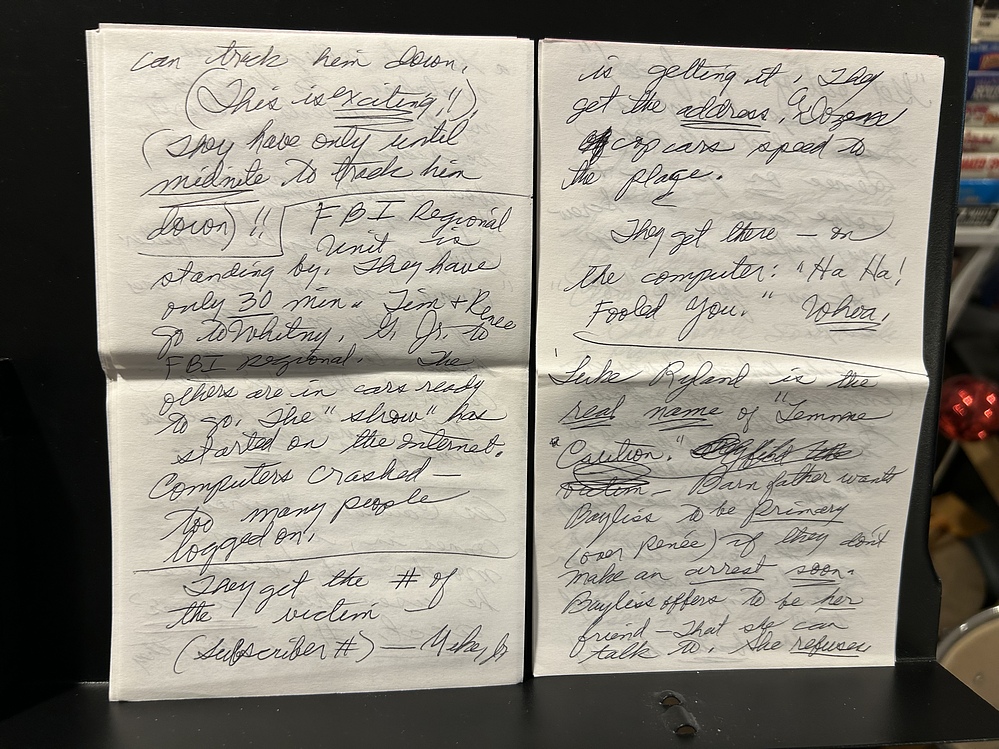 can track him down.
(This is exciting!!)
(They have only until
midnite to track him
down)!! FBI Regional
Unit is
standing by. They have
only 30 min. Tim + Renee
go to Whitny. G. Jr. to
FBI regional. The
others are in cars ready
to go. The "show" has
started on the internet.
Computers crashed —
Too many people
logged on.
They get the # of
the victim
(Subscriber #) — Mike, Jr
is getting it. They
get the address. A Dozens
cop cars speed to
the place.
They get there — on
the computer: "Ha Ha!
Fooled You." Whoa.
Luke Ryland is the
real name of "Lemme
Caution."
victim — Barnfather wants
Bayliss to be Primary
(over Renée) if they don't
make an arrest soon.
Bayliss offers to be her
friend — That she can
talk to. She refuses